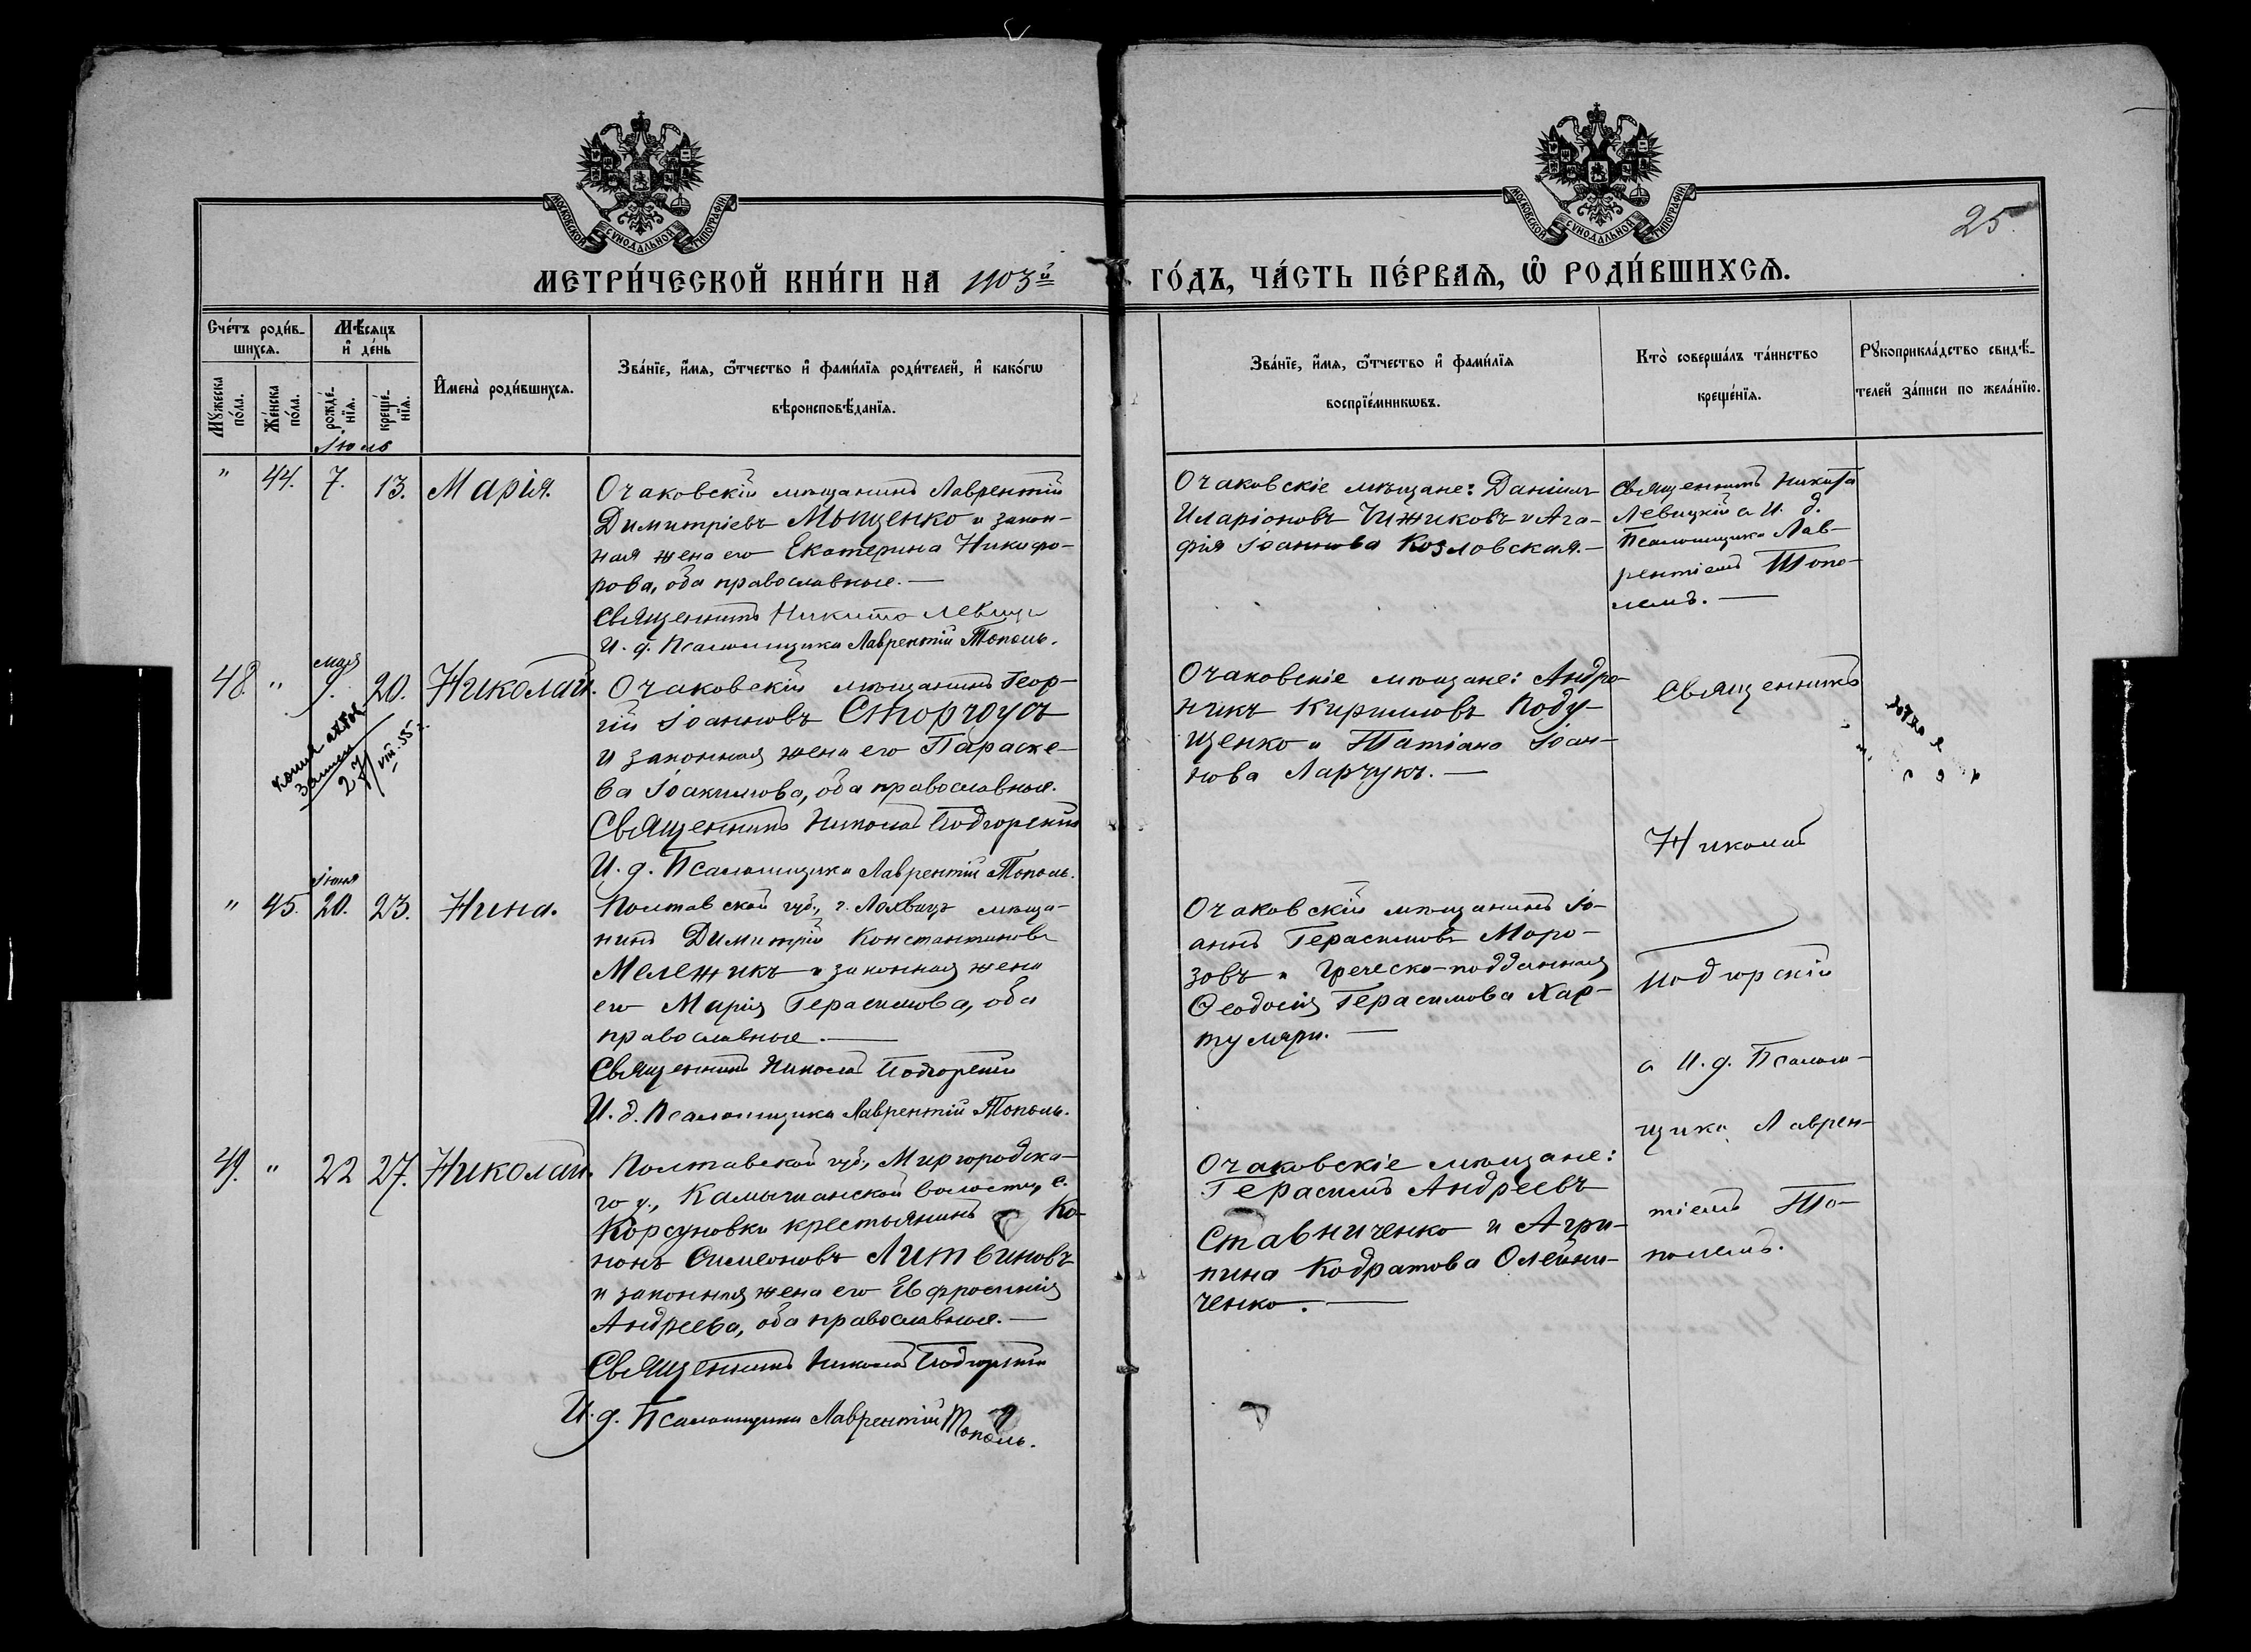 25
МОСКОВСКОЙ СѴНОДАЛЬНОЙ ТИПОГРАФІИ
МОСКОВСКОЙ СѴНОДАЛЬНОЙ ТИПОГРАФІИ
МЕТРИ́ЧЕСКОЙ КНИ́ГИ НА 1903й ГО́ДЪ, ЧА́СТЬ ПЕ́РВАѦ, Ѿ РОДИ́ВШИХСѦ.
Сче́тъ роди́в-
шихсѧ.
Мѣ́сѧцъ
и҆ де́нь
Мꙋ́жеска по́ла.
Же́нска по́ла.
рожде́-
нїѧ.
креще́-
нїѧ.
И҆мена̀ роди́вшихсѧ.
Зва́нїе, и҆́мѧ, ѻ҆́тчество и҆ фами́лїѧ роди́телей, и҆ како́гѡ
вѣроисповѣ́данїѧ.
Зва́нїе, и҆́мѧ, ѻ҆́тчество и҆ фами́лїѧ
воспрїе́мникѡвъ.
Кто̀ соверша́лъ та́инство
креще́нїѧ.
Рꙋкоприкла́дство свидѣ́-
телей за́писи по жела́нїю.
Іюль
" 44. 7. 13. Марія.
Очаковскій мѣщанинъ Лаврентій
Димитріевъ Мѣщенко и закон-
ная жена его Екатерина Никифо-
рова, оба православные. —
Священникъ Никита Левицк
И. д. Псаломщика Лаврентій Тополь.
Очаковскіе мѣщане: Даніилъ
Иларіоновъ Чижиковъ и Ага-
фія Іоаннова Козловская. —
Священникъ Никита
Левицкій с И. д.
Псаломщика Лав-
рентіемъ Топо-
лемъ. —
48. " мая 9. 20. Николай.
копия актов
27/VIII.55 г.
Очаковскій мѣщанинъ Геор-
гій Іоанновъ Сторчоусъ
и законная жена его Параске-
ва Іоакимова, оба православные.
Священникъ Николай Подгорскій
И. д. Псаломщика Лаврентій Тополь.
Очаковскіе мѣщане: Андро-
никъ Кирилловъ Поду-
щенко и Татіана Іоан-
нова Ларчукъ. —
Священникъ
Николай
Подгорскій
с И. д. Псалом-
щика Лаврен-
тіемъ То-
полемъ.
" 45. Іюня 20. 23. Нина.
Полтавской губ., г. Лохвицъ мѣща-
нинъ Димитрій Константиновъ
Мележикъ и законная жена
его Марія Герасимова, оба
православные. —
Священникъ Николай Подгорскій
И. д. Псаломщика Лаврентій Тополь.
Очаковскій мѣщанинъ Іо-
аннъ Герасимовъ Моро-
зовъ и греческо-подданная
Ѳеодосія Герасимова Хар-
туляри. —
49. " 22 27. Николай.
Полтавской губ., Миргородска-
го у., Камышанской волости, с.
Корсуновки крестьянинъ Ко-
нонъ Симеоновъ Литвиновъ
и законная жена его Евфросинія
Андреева, оба православные. —
Священникъ Николай Подгорскій
И. д. Псаломщика Лаврентій Тополь.
Очаковскіе мѣщане:
Герасимъ Андреевъ
Ставниченко и Агри-
пина Кодратова Олейни-
ченко. —